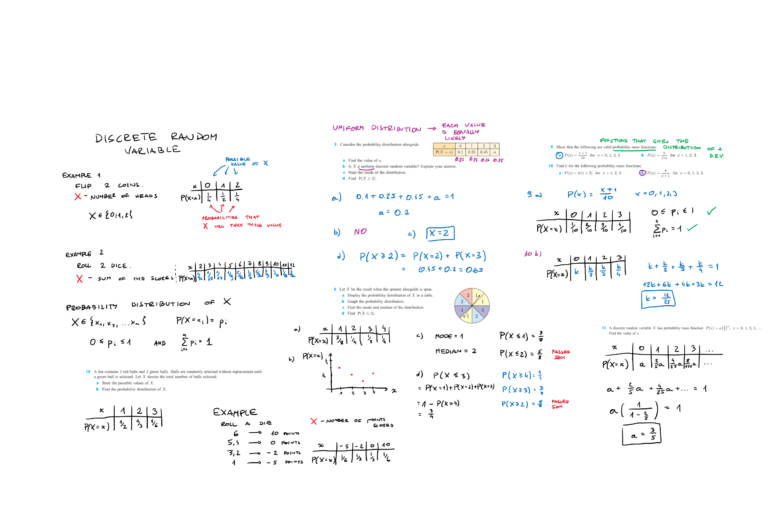 DISCRETE RANDOM
VARIABLE
POSSIBLE
VALUE OF X
EXAMPLE 1
FLIP 2 COINS.
X - NUMBER OF HEADS
X ∈ {0,1,2}
x | 0 | 1 | 2
P(X=x) | 1/4 | 1/2 | 1/4
PROBABILITIES THAT
X WILL TAKE THESE VALUE
EXAMPLE 2
ROLL 2 DICE.
X - SUM OF THE SCORES
x | 2 | 3 | 4 | 5 | 6 | 7 | 8 | 9 | 10 | 11 | 12
PROBABILITY DISTRIBUTION OF X
X ∈ {x₁, x₂, ... xₙ} P(X=xᵢ) = pᵢ
0 ≤ pᵢ ≤ 1 AND Σ pᵢ = 1
A hat contains 3 red balls and 2 green balls. Balls are randomly selected without replacement until
a green ball is selected. Let X denote the total number of balls selected.
a State the possible values of X.
b Find the probability distribution of X.
x | 1 | 2 | 3
P(X=x) | 1/2 | 1/3 | 1/6
EXAMPLE
ROLL A DIE
6 → 10 POINTS
5,4 → 0 POINTS
3,2 → -2 POINTS
1 → -5 POINTS
X - NUMBER OF POINTS
x | -5 | -2 | 0 | 10
P(X=x) | 1/6 | 1/3 | 1/3 | 1/6
UNIFORM DISTRIBUTION → EACH VALUE
IS EQUALLY
LIKELY
Consider the probability distribution alongside.
x 0 1 2 3
P(X = x) 0.1 0.25 0.45 a
0.25 0.25 0.25 0.25
a Find the value of a.
b Is X a uniform discrete random variable? Explain your answer.
c State the mode of the distribution.
d Find P(X ≥ 2).
a) 0.1 + 0.25 + 0.45 + a = 1
a = 0.2
b) NO c) X = 2
d) P(X ≥ 2) = P(X=2) + P(X=3)
= 0.45 + 0.2 = 0.65
Let X be the result when the spinner alongside is spun.
a Display the probability distribution of X in a table.
b Graph the probability distribution.
c Find the mode and median of the distribution.
d Find P(X ≤ 3).
a) x | 1 | 2 | 3 | 4
b) P(X=x)
x
c) MODE = 1
MEDIAN = 2
P(X ≤ 1) = 3/8
P(X ≤ 2) = 5/8
d) P(X ≤ 3)
= P(X=1) + P(X=2) + P(X=3)
= 1 - P(X=4)
= 3/4
P(X ≥ 4) = 1/4
P(X ≥ 3) = 3/8
P(X ≥ 2) = 5/8
FUNCTIONS THAT GIVES THE
DISTRIBUTION OF A
D.R.V
9 Show that the following are valid probability mass functions:
10 Find k for the following probability mass functions:
9 a) P(x) = x+1/10 x = 0,1,2,3
x | 0 | 1 | 2 | 3
P(X=x) | 1/10 | 2/10 | 3/10 | 4/10
0 ≤ pᵢ ≤ 1 ✓
Σ pᵢ = 1 ✓
10 b)
x | 0 | 1 | 2 | 3
P(X=x) | k | k/2 | k/3 | k/4
k + k/2 + k/3 + k/4 = 1
12k + 6k + 4k + 3k = 12
k = 12/25
A discrete random variable X has probability mass function
Find the value of a.
x | 0 | 1 | 2 | 3 | ...
P(X=x) | a | 2/5 a | 4/25 a | 8/125 a | ...
a + 2/5 a + 4/25 a + ... = 1
a ( 1 / 1 - 2/5 ) = 1
a = 3/5